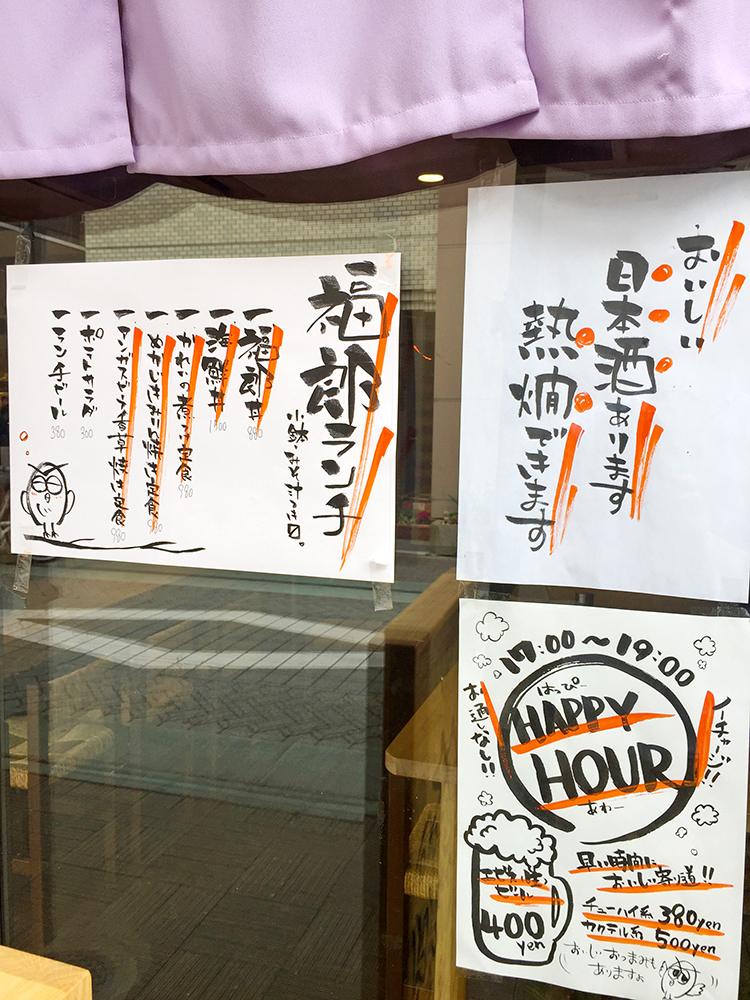 福郎ランチ
小鉢・みそ汁つき
一福郎丼
880
一海鮮丼
一かれいの煮つけ定食
980
一めかじきみりん焼き定食
980
一アンガスビーフ香草焼き定食
980
一ポテトサラダ
300
一ランチビール
380
おいしい
日本酒あります
熱燗できます
17:00〜19:00
はっぴー
HAPPY
HOUR
あわー
お通しなし!!
ノーチャージ!!
ビール
400
yen
早い時間に
おいしい寄り道!!
チューハイ系 380yen
カクテル系 500yen
おいしいおつまみも
ありますよ